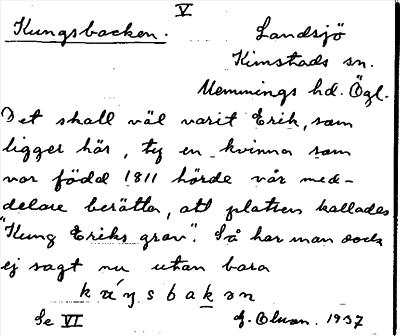 V
Kungsbacken. Landsjö
Kimstads sn.
Memmings hd. Ögl.
Det skall väl varit Erik, som
ligger här, ty en kvinna som
var född 1811 hörde vår med-
delare berätta, att platsen kallades
"Kung Eriks grav". Så har man dock
ej sagt nu utan bara
Se VI
1937